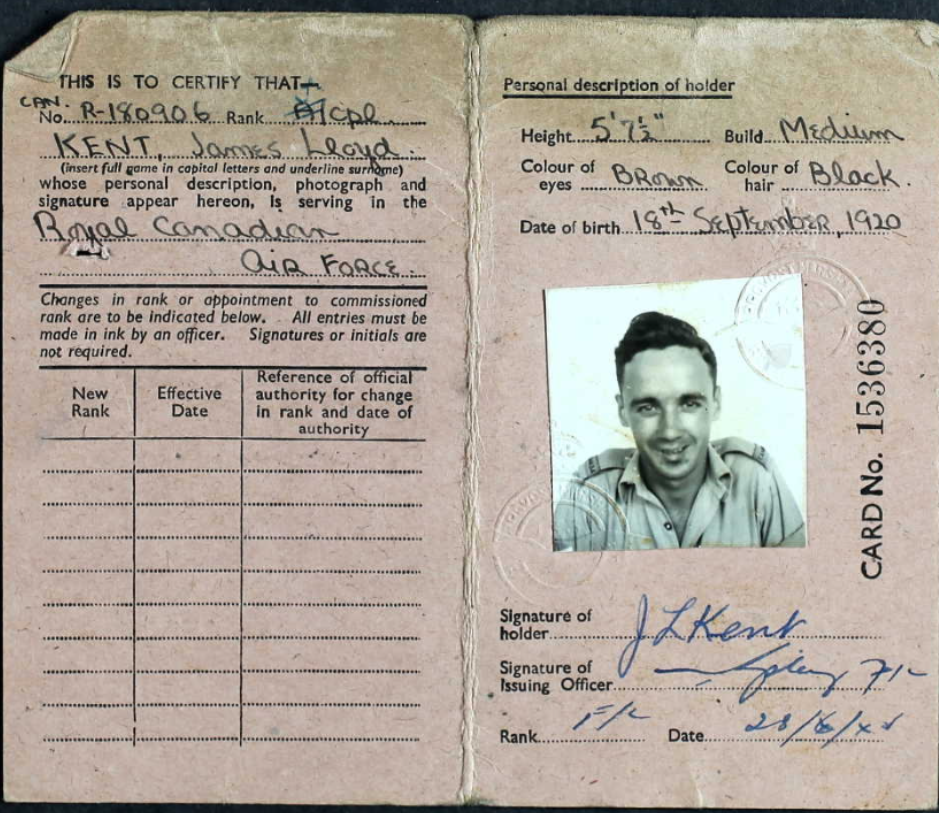 THIS IS TO CERTIFY THAT—
CAN.
No. R-180906 Rank A/cpl.
KENT, James Lloyd.
(insert full name in capital letters and underline surname)
whose personal description, photograph and
signature appear hereon, is serving in the
Royal Canadian
AIR FORCE.
Changes in rank or appointment to commissioned
rank are to be indicated below. All entries must be
made in ink by an officer. Signatures or initials are
not required.
New Rank
Effective Date
Reference of official authority for change in rank and date of authority
Personal description of holder
Height 5'7½" Build Medium
Colour of eyes Brown Colour of hair Black.
Date of birth 18th September, 1920
CARD No. 1536380
Signature of holder J L Kent
Signature of Issuing Officer F/L
Rank F/L Date